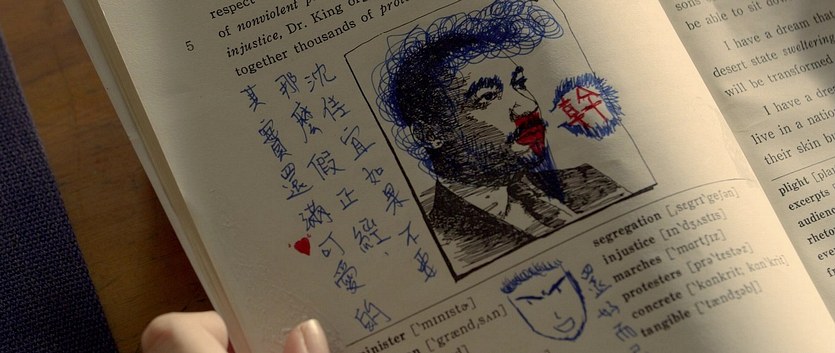 respect
5
of nonviolent
injustice, Dr. King
together thousands of
沈佳宜如果不要
那麼假正經,
其實還滿可愛的
幹
還好而已
segregation [ˌsɛgrɪˈgeʃən]
injustice [ɪnˈdʒʌstɪs]
marches [ˈmɑrtʃɪz]
protesters [prəˈtɛstɚz]
concrete [ˈkɑnkrit; kɑnˈkrit]
tangible [ˈtændʒəbl̩]
minister [ˈmɪnɪstɚ]
[ˈgrændˌsʌn]
sons
be able to sit
I have a dream that
desert state sweltering
will be transformed
I have a
live in a
their skin
plight
excerpts